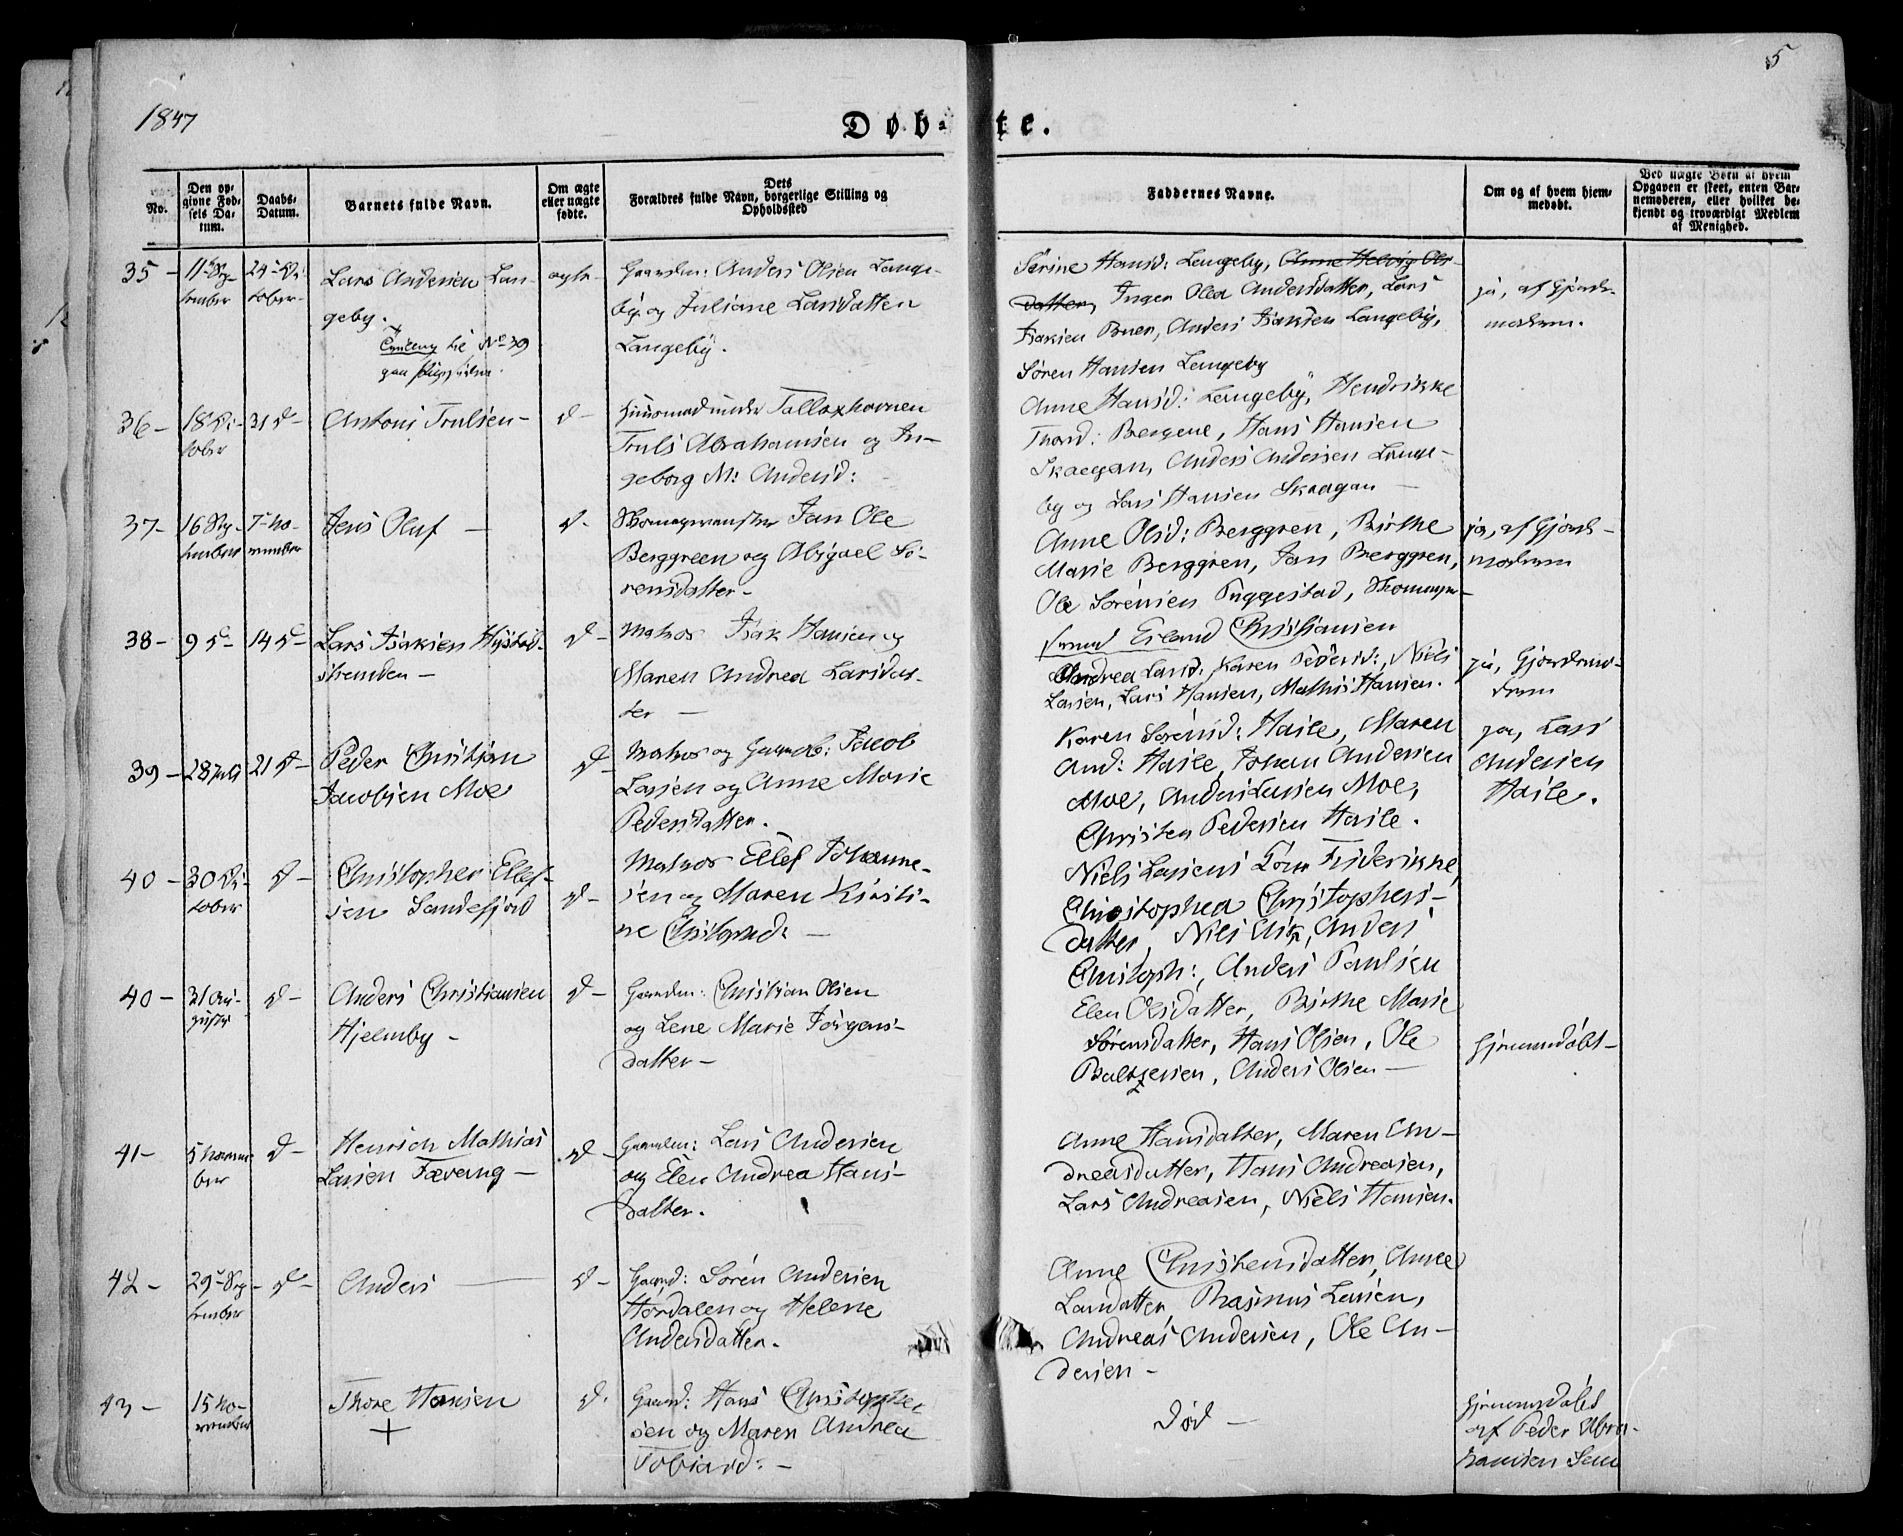 1847
5
Døb-te.
No.
Den op-
givne Fød-
sels Da-
tum.
Daabs-
Datum.
Barnets fulde Navn.
Om ægte
eller uægte
fødte.
Dets
Forældres fulde Navn, borgerlige Stilling og
Opholdssted
Faddernes Navne.
Om og af hvem hjem-
medøbt.
Ved uægte Børn af hvem
Opgaven er skeet, enten Bar-
nemoderen, eller hvilket be-
kjendt og troværdigt Medlem
af Menighed.
35 -
11te Sep-
tember
24de Oc-
tober
Lars Andersen Lan-
geby.
No 39
ægte
Gaardm: Anders Olsen Lange-
by og Juliane Larsdatter
Langeby.
Sørine Hansd: Langeby, Anne Helvig Ols-
datter, Inger Olea Andersdatter, Lars
Isaksen Buer, Anders Isaksen Langeby,
Søren Hansen Langeby
ja, af Gjorde-
moderen.
36 -
18 Oc-
tober
31 d -
Antoni Trulsen -
d -
Huusmand under Tallaxhavnen
Truls Abrahamsen og In-
geborg M: Andersd:
Anne Hansd: Langeby, Hendrikke
Thord: Bergene, Hans Hansen
Skaegan, Anders Andersen Lange-
by og Lars Hansen Skaagan -
37 -
16 Sep-
tember
7de No-
vember
Jens Oluf -
d -
Jan Ole
Berggreen og Abigael Sø-
rensdatter -
Anne Olsd: Berggren, Birthe
Marie Berggren, Jan Berggren,
Ole Sørensen Puggestad, Skomager-
svend Erland Christiansen
ja, af Gjorde-
moderen
38 -
9 d -
14 d -
Lars Isaksen Hystad-
stranden -
d -
Matros Isak Hansen og
Maren Andrea Larsdat-
ter -
Andrea Larsd: Karen Pedersd:, Niels
Larsen, Lars Hansen, Mathis Hansen.
ja, Gjordemo-
deren
39 -
28 Juli
21 d -
Peder Christian
Jacobsen Moe
d -
Matros og Gaardb: Jacob
Larsen og Anne Marie
Pedersdatter.
Karen Sørensd: Hasle, Maren
And: Hasle, Johan Andersen
Moe, Anders Larsen Moe,
Christen Pedersen Hasle.
ja, Lars
Andersen
Hasle.
40 -
30 Oc-
tober
d -
Christopher Ellef-
sen Sandefjord
d -
Matros Ellef Johanne-
sen og Maren Kirsti-
ne Christophd: -
Niels Larsens Kone Frederikke,
Christophea Christophers-
datter, Niels Eik, Anders
Christoph:, Anders Paulsen
40 -
31 Au-
gust
d -
Anders Christiansen
Hjelmby -
d -
Gaardm: Christian Olsen
og Lene Marie Jørgens-
datter -
Elen Olsdatter, Birthe Marie
Sørensdatter, Hans Olsen, Ole
Baltzersen, Anders Olsen -
Hjemmedøbt -
41 -
5 Novem-
ber
d -
Henrich Mathias
Larsen Farvang -
d -
Gaardm: Lars Andersen
og Elen Andrea Hans-
datter.
Anne Hansdatter, Maren An-
dreasdatter, Hans Andreasen,
Lars Andreasen, Niels Hansen.
42 -
29de Sep-
tember
d -
Anders
d -
Gaard: Søren Andersen
Hørdalen og Helene
Andersdatter.
Anne Christensdatter, Anne
Larsdatter, Rasmus Larsen,
Andreas Andersen, Ole An-
dersen -
43 -
15 No-
vember
Thore Hansen
+
d.
Gaard: Hans Christopher-
sen og Maren Andrea
Tobiasd: -
Død -
Hjemmedøbt
af Peder Abra-
hamsen Sem